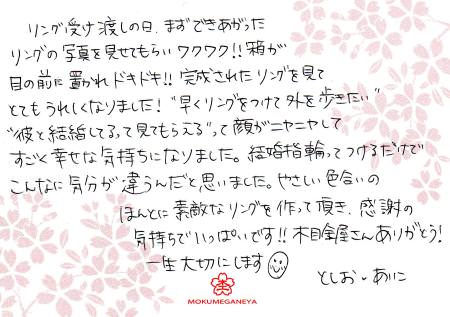 リング受け渡しの日、まずできあがった
リングの写真を見せてもらいワクワク!! 箱が
目の前に置かれドキドキ!! 完成されたリングを見て
とてもうれしくなりました! "早くリングをつけて外を歩きたい"
"彼と結婚してるって見てもらえる"って顔がニヤニヤして
すごく幸せな気持ちになりました。結婚指輪ってつけるだけで
こんなに気分が違うんだと思いました。やさしい色合いの
ほんとに素敵なリングを作って頂き、感謝の
気持ちでいっぱいです!! 木目金屋さんありがとう!
一生大切にします
としお・あいこ
MOKUMEGANEYA